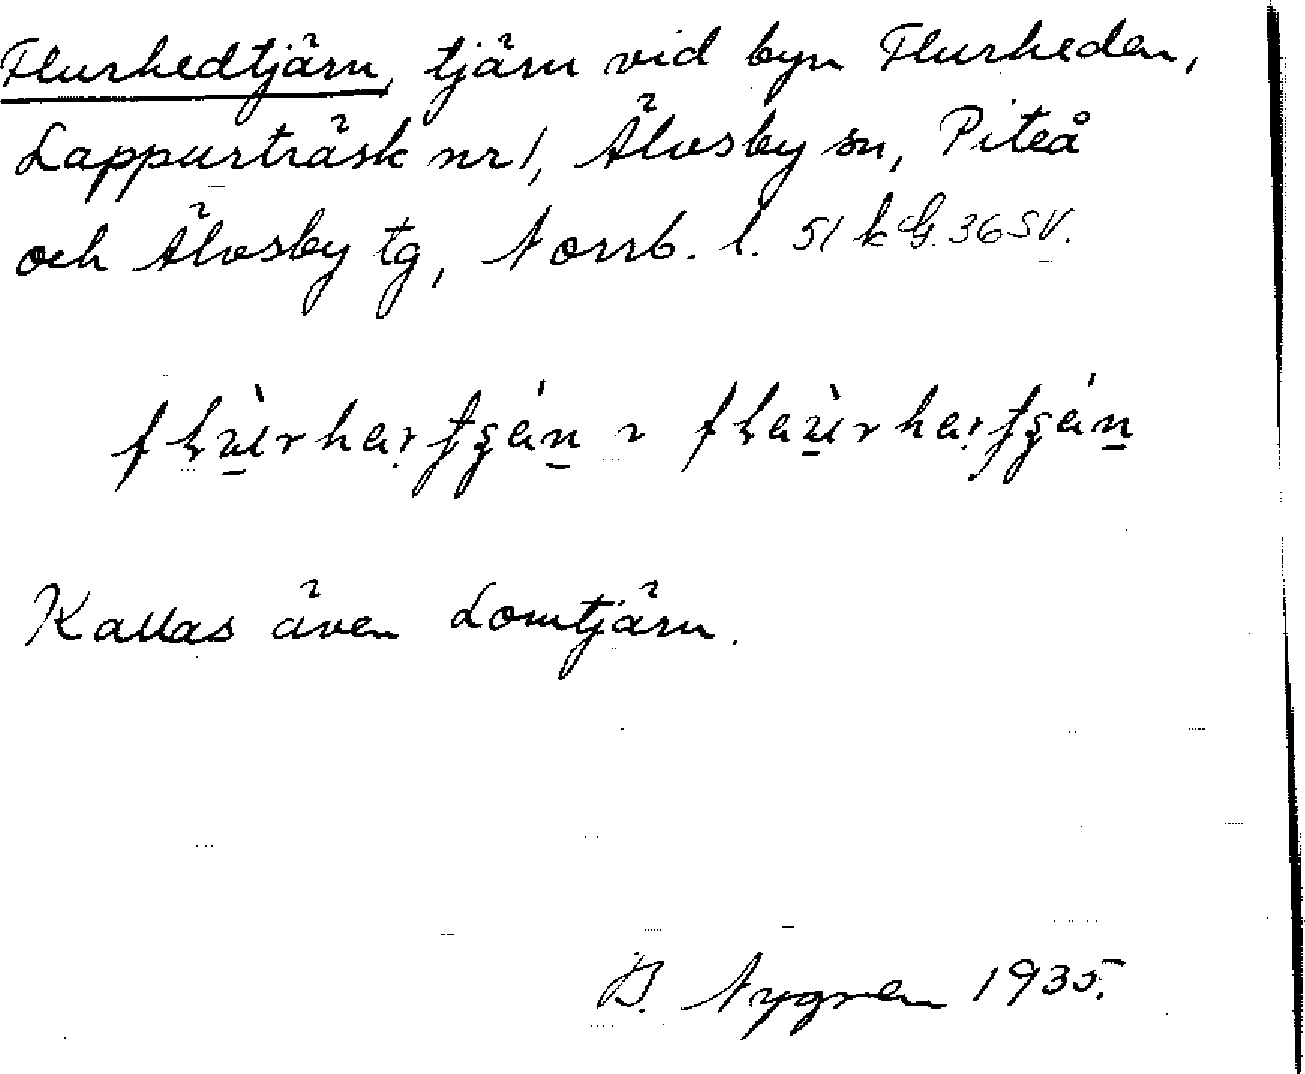 Flurhedtjärn, tjärn vid byn Flurheden,
Lappurträsk nr 1, Älvsby sn, Piteå
och Älvsby tg, Norrb. l. 51 k G. 36 SV.
Kallas även Lomtjärn.
B. Nygren 1935.